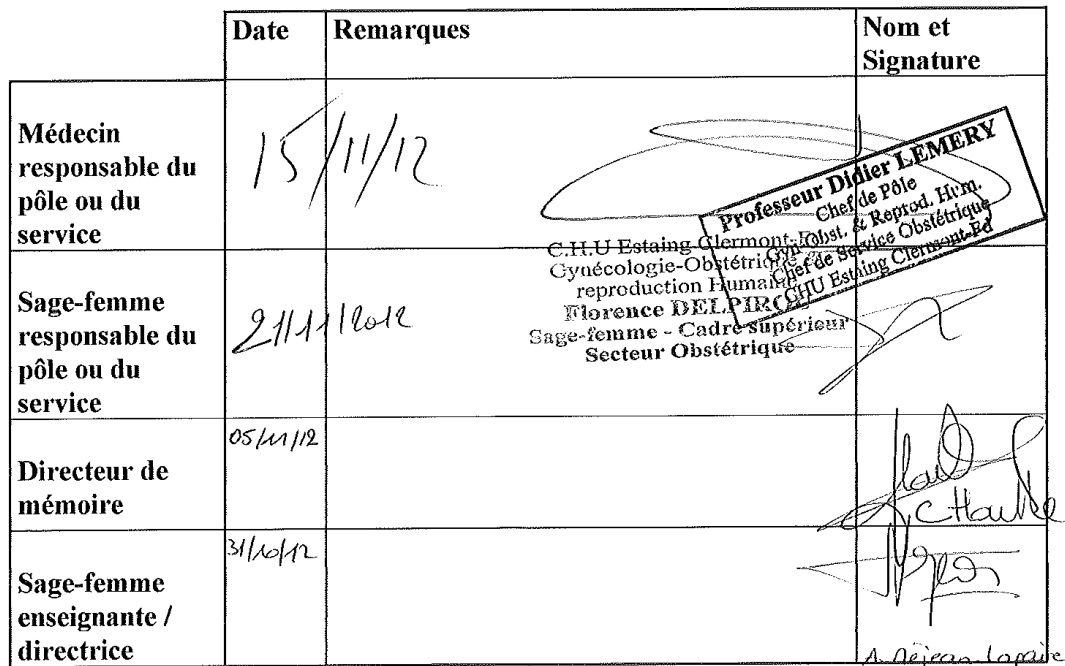 Date
Remarques
Nom et
Signature
Médecin
responsable du
pôle ou du
service
15/11/12
Professeur Didier LEMERY
Chef de Pôle
Gyn-Obst. & Reprod. Hum.
Chef de Service Obstétrique
CHU Estaing Clermont-Fd
Sage-femme
responsable du
pôle ou du
service
21/11/2012
C.H.U Estaing Clermont-
Gynécologie-Obstétrique
reproduction Humaine
Florence
Sage-femme - Cadre supérieur
Secteur Obstétrique
Directeur de
mémoire
05/11/12
Sage-femme
enseignante /
directrice
31/10/12